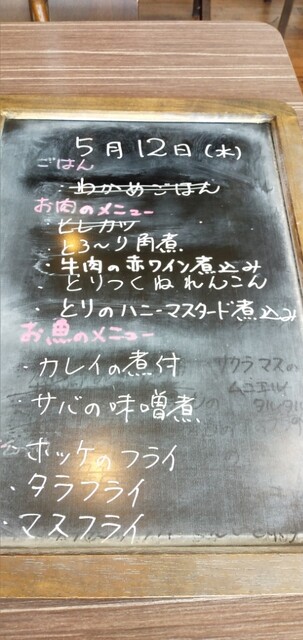 5月12日(水)
ごはん
・わかめごはん
お肉のメニュー
・ヒレカツ
・とろ～り角煮
・牛肉の赤ワイン煮込み
・とりつくねれんこん
・とりのハニーマスタード煮込み
お魚のメニュー
・カレイの煮付
・サバの味噌煮
・ホッケのフライ
・タラフライ
・マスフライ
サクラマスの
ムニエル
タルタル